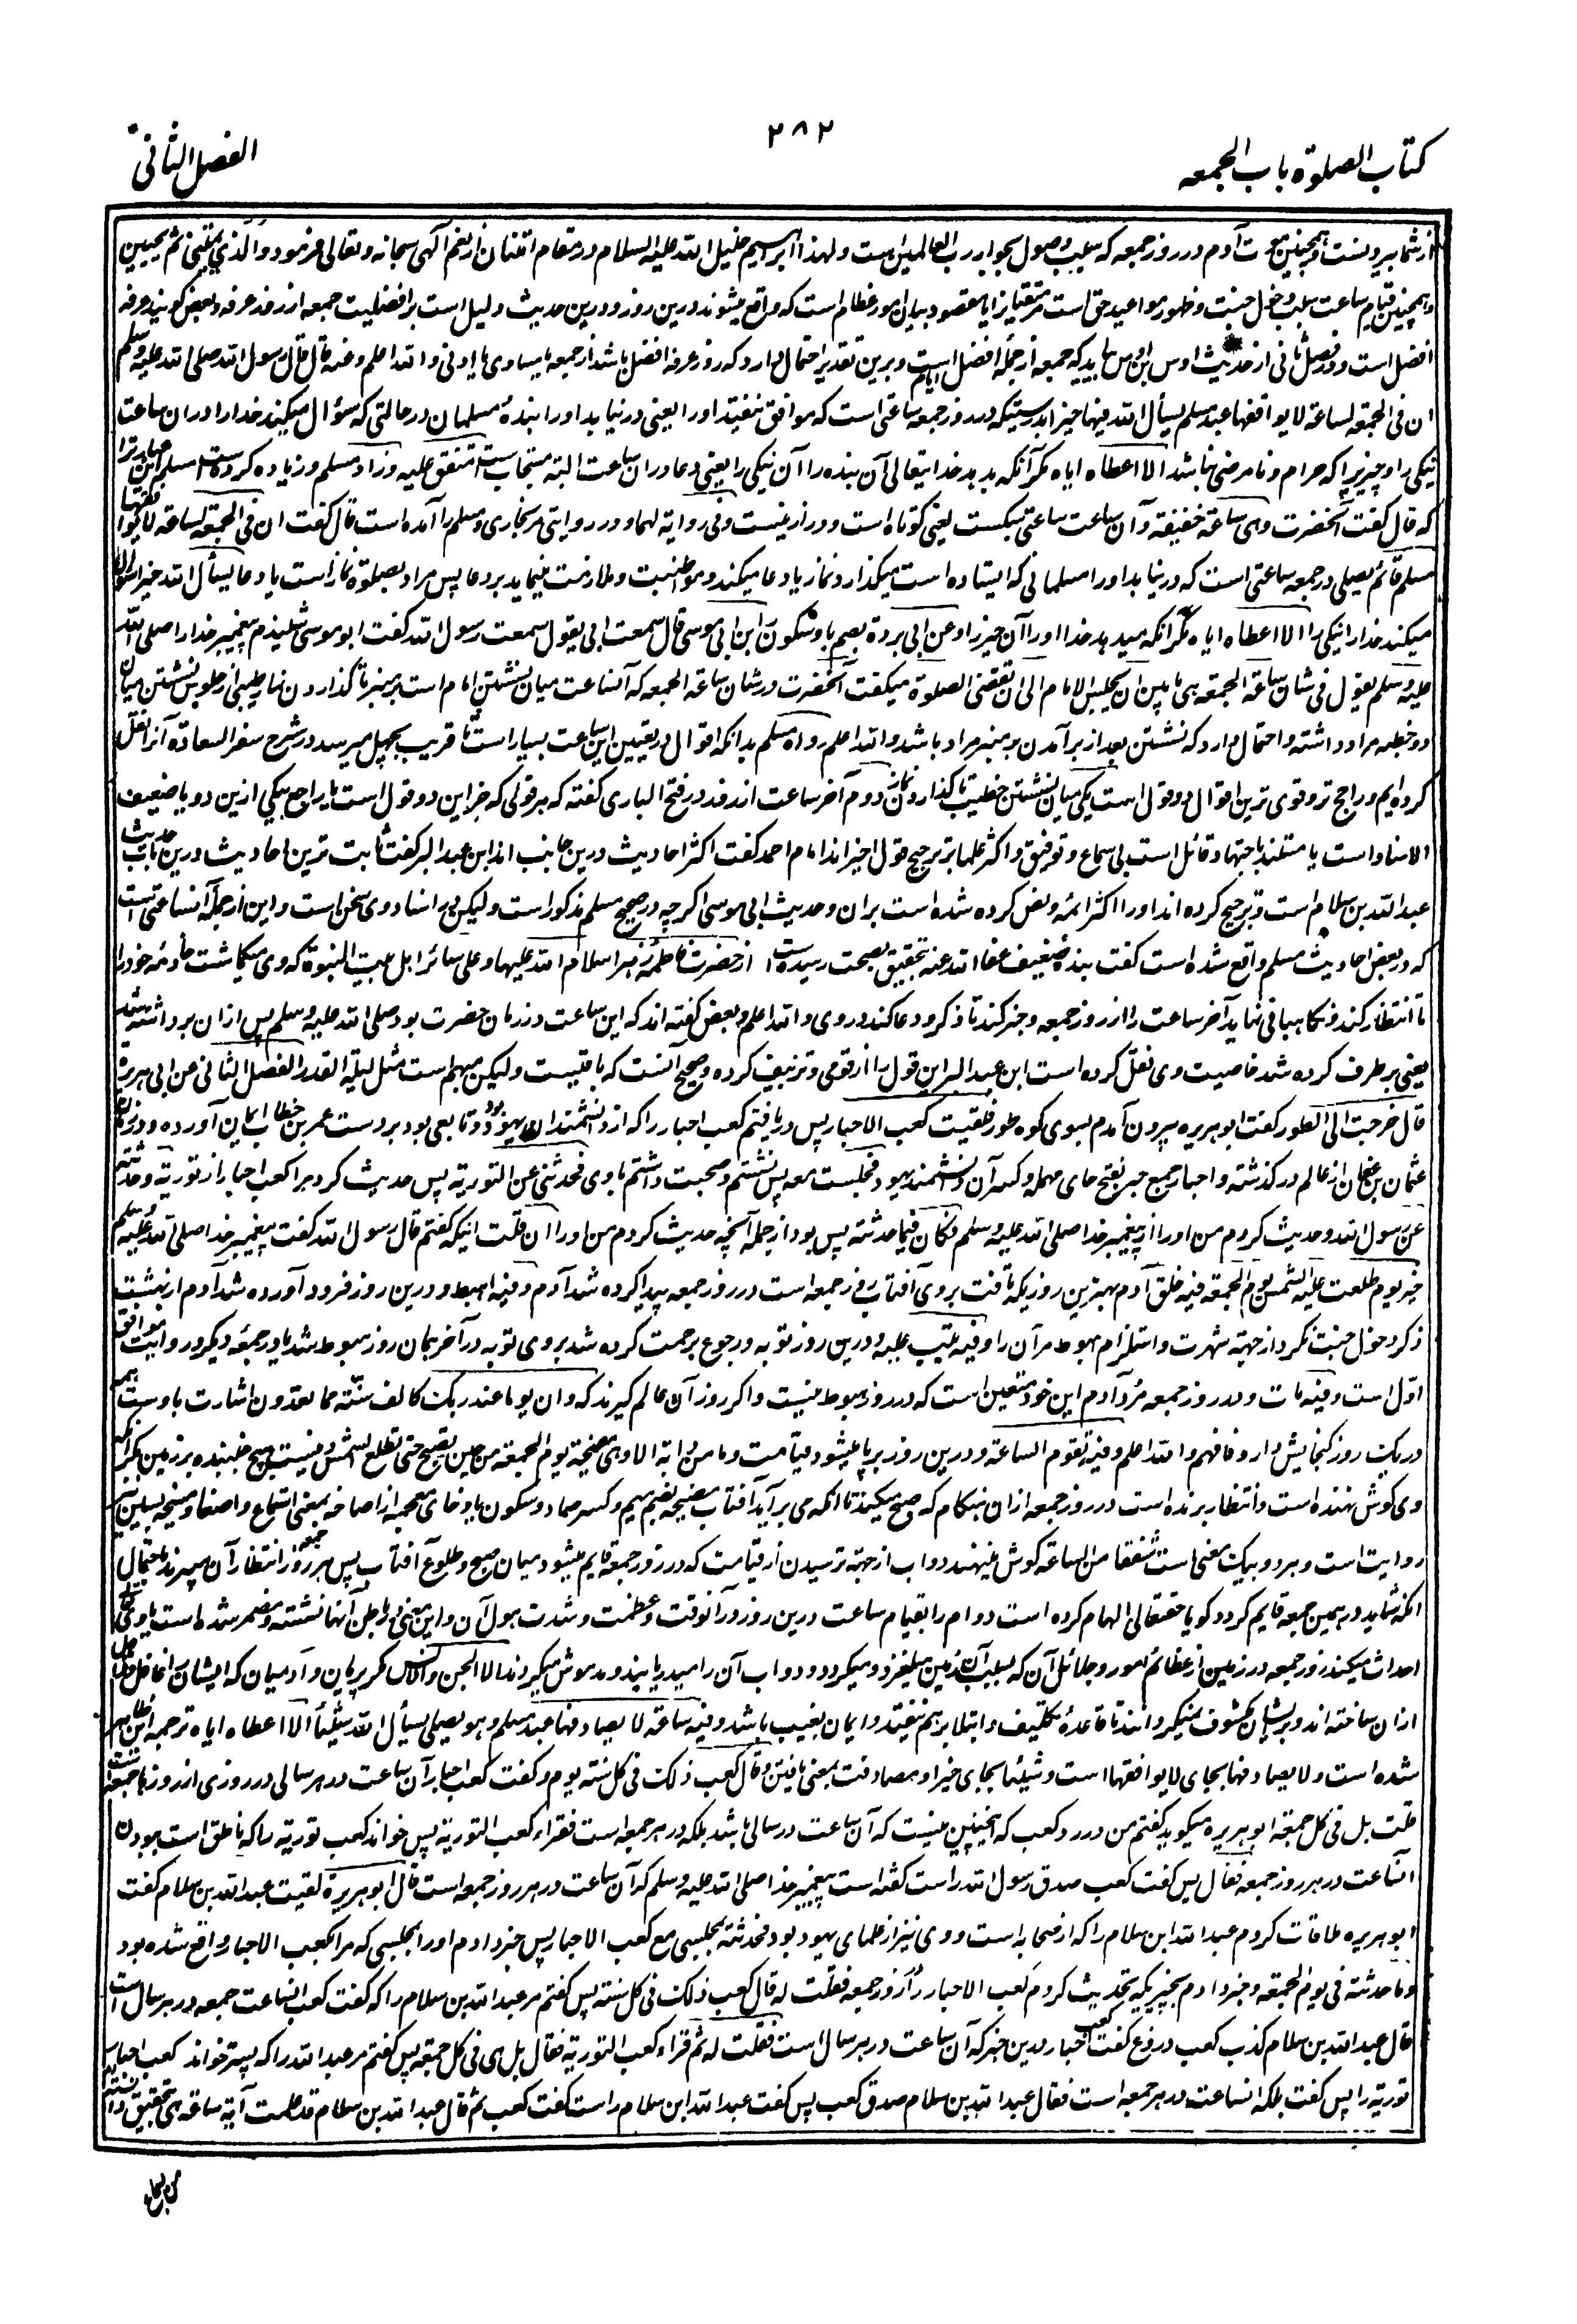 کتاب الصلوة باب الجمعه
۲۸۲
الفصل الثانی
از شما بیرونست و همچنین موت آدم در روز جمعه که سبب وصول بجوار رب العالمین است ولهذا ابراهیم خلیل الله علیه السلام در مقام امتنان از نعم الهی سبحانه وتعالی فرمود والذی یمیتنی ثم یحیین
و همچنین قیام ساعت سبب دخول جنت و ظهور مواعید حق است مر متقیان را یا مقصود بیان امور عظام است که واقع میشوند درین روز و درین حدیث دلیل است بر افضلیت جمعه از روز عرفه و بعض گویند عرفه
افضل است و در فصل ثانی از حدیث اوس بن اوس بیاید که جمعه از جملهٔ افضل ایام است و برین تقدیر احتمال دارد که روز عرفه افضل باشد از جمعه یا مساوی یا ادنی والله اعلم وعنه قال قال رسول الله صلی الله علیه وسلم
ان فی الجمعة لساعة لا یوافقها عبد مسلم یسأل الله فیها خیرا بدرستیکه در روز جمعه ساعتی است که موافق نیفتد اورا یعنی در نیابد اورا بندهٔ مسلمان در حالتی که سؤال میکند خدا را در ان ساعت
نیکی را و چیزیرا که حرام و نامرضی نباشد الا اعطاه ایاه مگر آنکه بدهد خدایتعالی آن بنده را آن نیکی را یعنی دعا در ان ساعت البته مستجابست متفق علیه وزاد مسلم وزیاده کرده است مسلم این عبارترا
که قال گفت آنحضرت وهی ساعة خفیفة و آن ساعت ساعتی سبکست یعنی کوتاه است و دراز نیست وفی روایة لهما و در روایتی مر بخاری و مسلم را آمده است قال گفت ان فی الجمعة لساعة لا یوافقها
مسلم قائم یصلی در جمعه ساعتی است که در نیابد اورا مسلمانی که ایستاده است میگذارد نماز یا دعا میکند و مواظبت و ملازمت مینماید بر دعا پس مراد بصلوة نماز است یا دعا یسأل الله خیرا سؤال
میکند خدا را نیکی را الا اعطاه ایاه مگر آنکه میدهد خدا اورا آن چیز را وعن ابی بردة بضم با و سکون را ابن ابی موسی قال سمعت ابی یقول سمعت رسول الله گفت ابو موسی شنیدم پیغمبر خدا را صلی الله
علیه وسلم یقول فی شان ساعة الجمعة هی ما بین ان یجلس الامام الی ان تقضی الصلوة میگفت آنحضرت در شان ساعة الجمعه که آنساعت میان نشستن امام است بر منبر تا گذاردن نماز طیبی از جلوس نشستن میان
دو خطبه مراد داشته و احتمال دارد که نشستن بعد از برآمدن بر منبر مراد باشد والله اعلم رواه مسلم بدانکه اقوال در تعیین این ساعت بسیار است تا قریب بچهل میرسد در شرح سفر السعادة آنرا نقل
کرده ایم و راجح تر و قوی ترین اقوال دو قول است یکی میان نشستن خطیب تا گذاردن نماز دوم آخر ساعت از روز در فتح الباری گفته که هر قولی که جز این دو قول است یا راجع بیکی ازین دو یا ضعیف
الاسناد است یا مستند باجتهاد قائل است بی سماع و توفیق و اکثر علما بر ترجیح قول اخیر اند امام احمد گفت اکثر احادیث درین جانب اند ابن عبد البر گفت ثابت ترین احادیث درین باب حدیث
عبد الله بن سلام است و ترجیح کرده اند اورا اکثر ائمه و نص کرده شده است بران و حدیث ابی موسی اگرچه در صحیح مسلم مذکور است ولیکن در اسناد وی سخن است و این از جمله آنساعتی است
که در بعض احادیث مسلم واقع شده است گفت بنده ضعیف عفا الله عنه بتحقیق بصحت رسیده است از حضرت فاطمهٔ زهرا سلام الله علیها وعلی سائر اهل بیت النبوة که وی میگماشت خادمه خود را
تا انتظار کند و نگاهبانی نماید آخر ساعت را از روز جمعه و خبر کند تا ذکر و دعا کند در وی والله اعلم و بعض گفته اند که این ساعت در زمان حضرت بود صلی الله علیه وسلم پس ازان برداشته شد
یعنی بر طرف کرده شد خاصیت وی نقل کرده است ابن عبد البر این قول را از قومی و تزییف کرده و صحیح آنست که باقیست ولیکن مبهم است مثل لیلة القدر الفصل الثانی عن ابی هریرة
قال خرجت الی الطور گفت ابو هریره بیرون آمدم بسوی کوه طور فلقیت کعب الاحبار پس دریافتم کعب احبار را که از دانشمندان یهود بود و تابعی بود بر دست عمر بن خطاب ایمان آورده و در زمان
عثمان بن عفان از عالم در گذشته و احبار جمع حبر بفتح حای مهمله و کسر آن دانشمند یهود فجلست معه پس نشستم و صحبت داشتم با وی فحدثنی عن التوریة پس حدیث کرد مرا کعب احبار از توریة وحدثته
عن رسول الله و حدیث کردم من اورا از پیغمبر خدا صلی الله علیه وسلم فکان فیما حدثته پس بود از جمله آنچه حدیث کردم من اورا ان قلت اینکه گفتم قال رسول الله گفت پیغمبر خدا صلی الله علیه وسلم
خیر یوم طلعت علیه الشمس یوم الجمعة فیه خلق آدم بهترین روزیکه تافت بر وی آفتاب روز جمعه است در روز جمعه پیدا کرده شد آدم وفیه اهبط و درین روز فرود آورده شد آدم از بهشت
ذکر دخول جنت نکرد از جهة شهرت و استلزام هبوط مر آن را وفیه تیب علیه و درین روز توبه و رجوع برحمت کرده شد بر وی توبه در آخر همان روز هبوط شد یا در جمعهٔ دیگر در روایت موافق
اول است وفیه مات و در روز جمعه مرد آدم این خود متعین است که در روز هبوط نیست و اگر روز آن عالم گیرند که وان یوما عند ربک کالف سنة مما تعدون اشارت باوست همه
در یک روز گنجایش دارد فافهم والله اعلم وفیه تقوم الساعة و درین روز بر پا میشود قیامت وما من دابة الا وهی مصیخة یوم الجمعة من حین تصبح حتی تطلع الشمس و نیست هیچ جنبنده بر زمین مگر آنکه
وی گوش نهنده است و انتظار برنده است در روز جمعه ازان هنگام که صبح میکند تا آنکه می برآید آفتاب مصیخة بضم میم و کسر صاد و سکون یا و خای معجمه از اصاخه بمعنی استماع و اصغا و مسیخة بسین نیز
روایت است و هر دو بیک معنی است شفقا من الساعة گوش مینهند دواب از جهة ترسیدن از قیامت که در روز جمعه قایم میشود میان صبح و طلوع آفتاب پس هر روز جمعه انتظار آن میبرند باحتمال
آنکه شاید در همین جمعه قایم گردد گویا حقتعالی الهام کرده است دواب را بقیام ساعت درین روز در آنوقت و عظمت و شدت هول آن و این معنی در باطن آنها نشسته و مضمر شده است یا وی تعالی
احداث میکند روز جمعه در زمین از عظائم امور و جلائل آن که بسبب آن زمین میلغزد و میگردد و دواب آن را میدریابند و مدهوش میگردند الا الجن والانس مگر پریان و آدمیان که ایشان را غافل
ازان ساخته اند و بر ایشان مکشوف نمیگردانند تا قاعدهٔ تکلیف و ابتلا بر هم نیفتد و ایمان بغیب باشد وفیه ساعة لا یصادفها عبد مسلم وهو یصلی یسأل الله شیئا الا اعطاه ایاه ترجمه این ظاهر
شده است ولا یصادفها بجای لا یوافقها است وشیئا بجای خیرا ومصادفت بمعنی یافتن وقال کعب ذلک فی کل سنة یوم و گفت کعب احبار آن ساعت در هر سالی در روزی از روزها جمعه است
قلت بل فی کل جمعة ابو هریره میگوید گفتم من در رد کعب که همچنین نیست که آن ساعت در سالی باشد بلکه در هر جمعه است فقراء کعب التوریة پس خواند کعب توریة را که ناطق است ببودن
آنساعت در هر روز جمعه فقال پس گفت کعب صدق رسول الله راست گفته است پیغمبر خدا صلی الله علیه وسلم که آن ساعت در هر روز جمعه است قال ابو هریرة لقیت عبد الله بن سلام گفت
ابو هریره ملاقات کردم عبد الله ابن سلام را که از صحابه است و وی نیز از علمای یهود بود فحدثته بمجلسی مع کعب الاحبار پس خبر دادم اورا بمجلسی که مرا بکعب الاحبار واقع شده بود
وما حدثته فی یوم الجمعة و خبر دادم بچیزیکه تحدیث کردم کعب الاحبار را از روز جمعه فقلت له قال کعب ذلک فی کل سنة پس گفتم مر عبد الله بن سلام را که گفت کعب آنساعت جمعه در هر سال است
قال عبد الله بن سلام کذب کعب دروغ گفت کعب احبار درین خبر که آن ساعت در هر سال است فقلت له ثم قراء کعب التوریة فقال بل هی فی کل جمعة پس گفتم مر عبد الله را که پستر خواند کعب احبار
توریة را پس گفت بلکه آنساعت در هر جمعه است فقال عبد الله بن سلام صدق کعب پس گفت عبد الله ابن سلام راست گفت کعب ثم قال عبد الله بن سلام قد علمت آیة ساعة هی بتحقیق دانسته ام